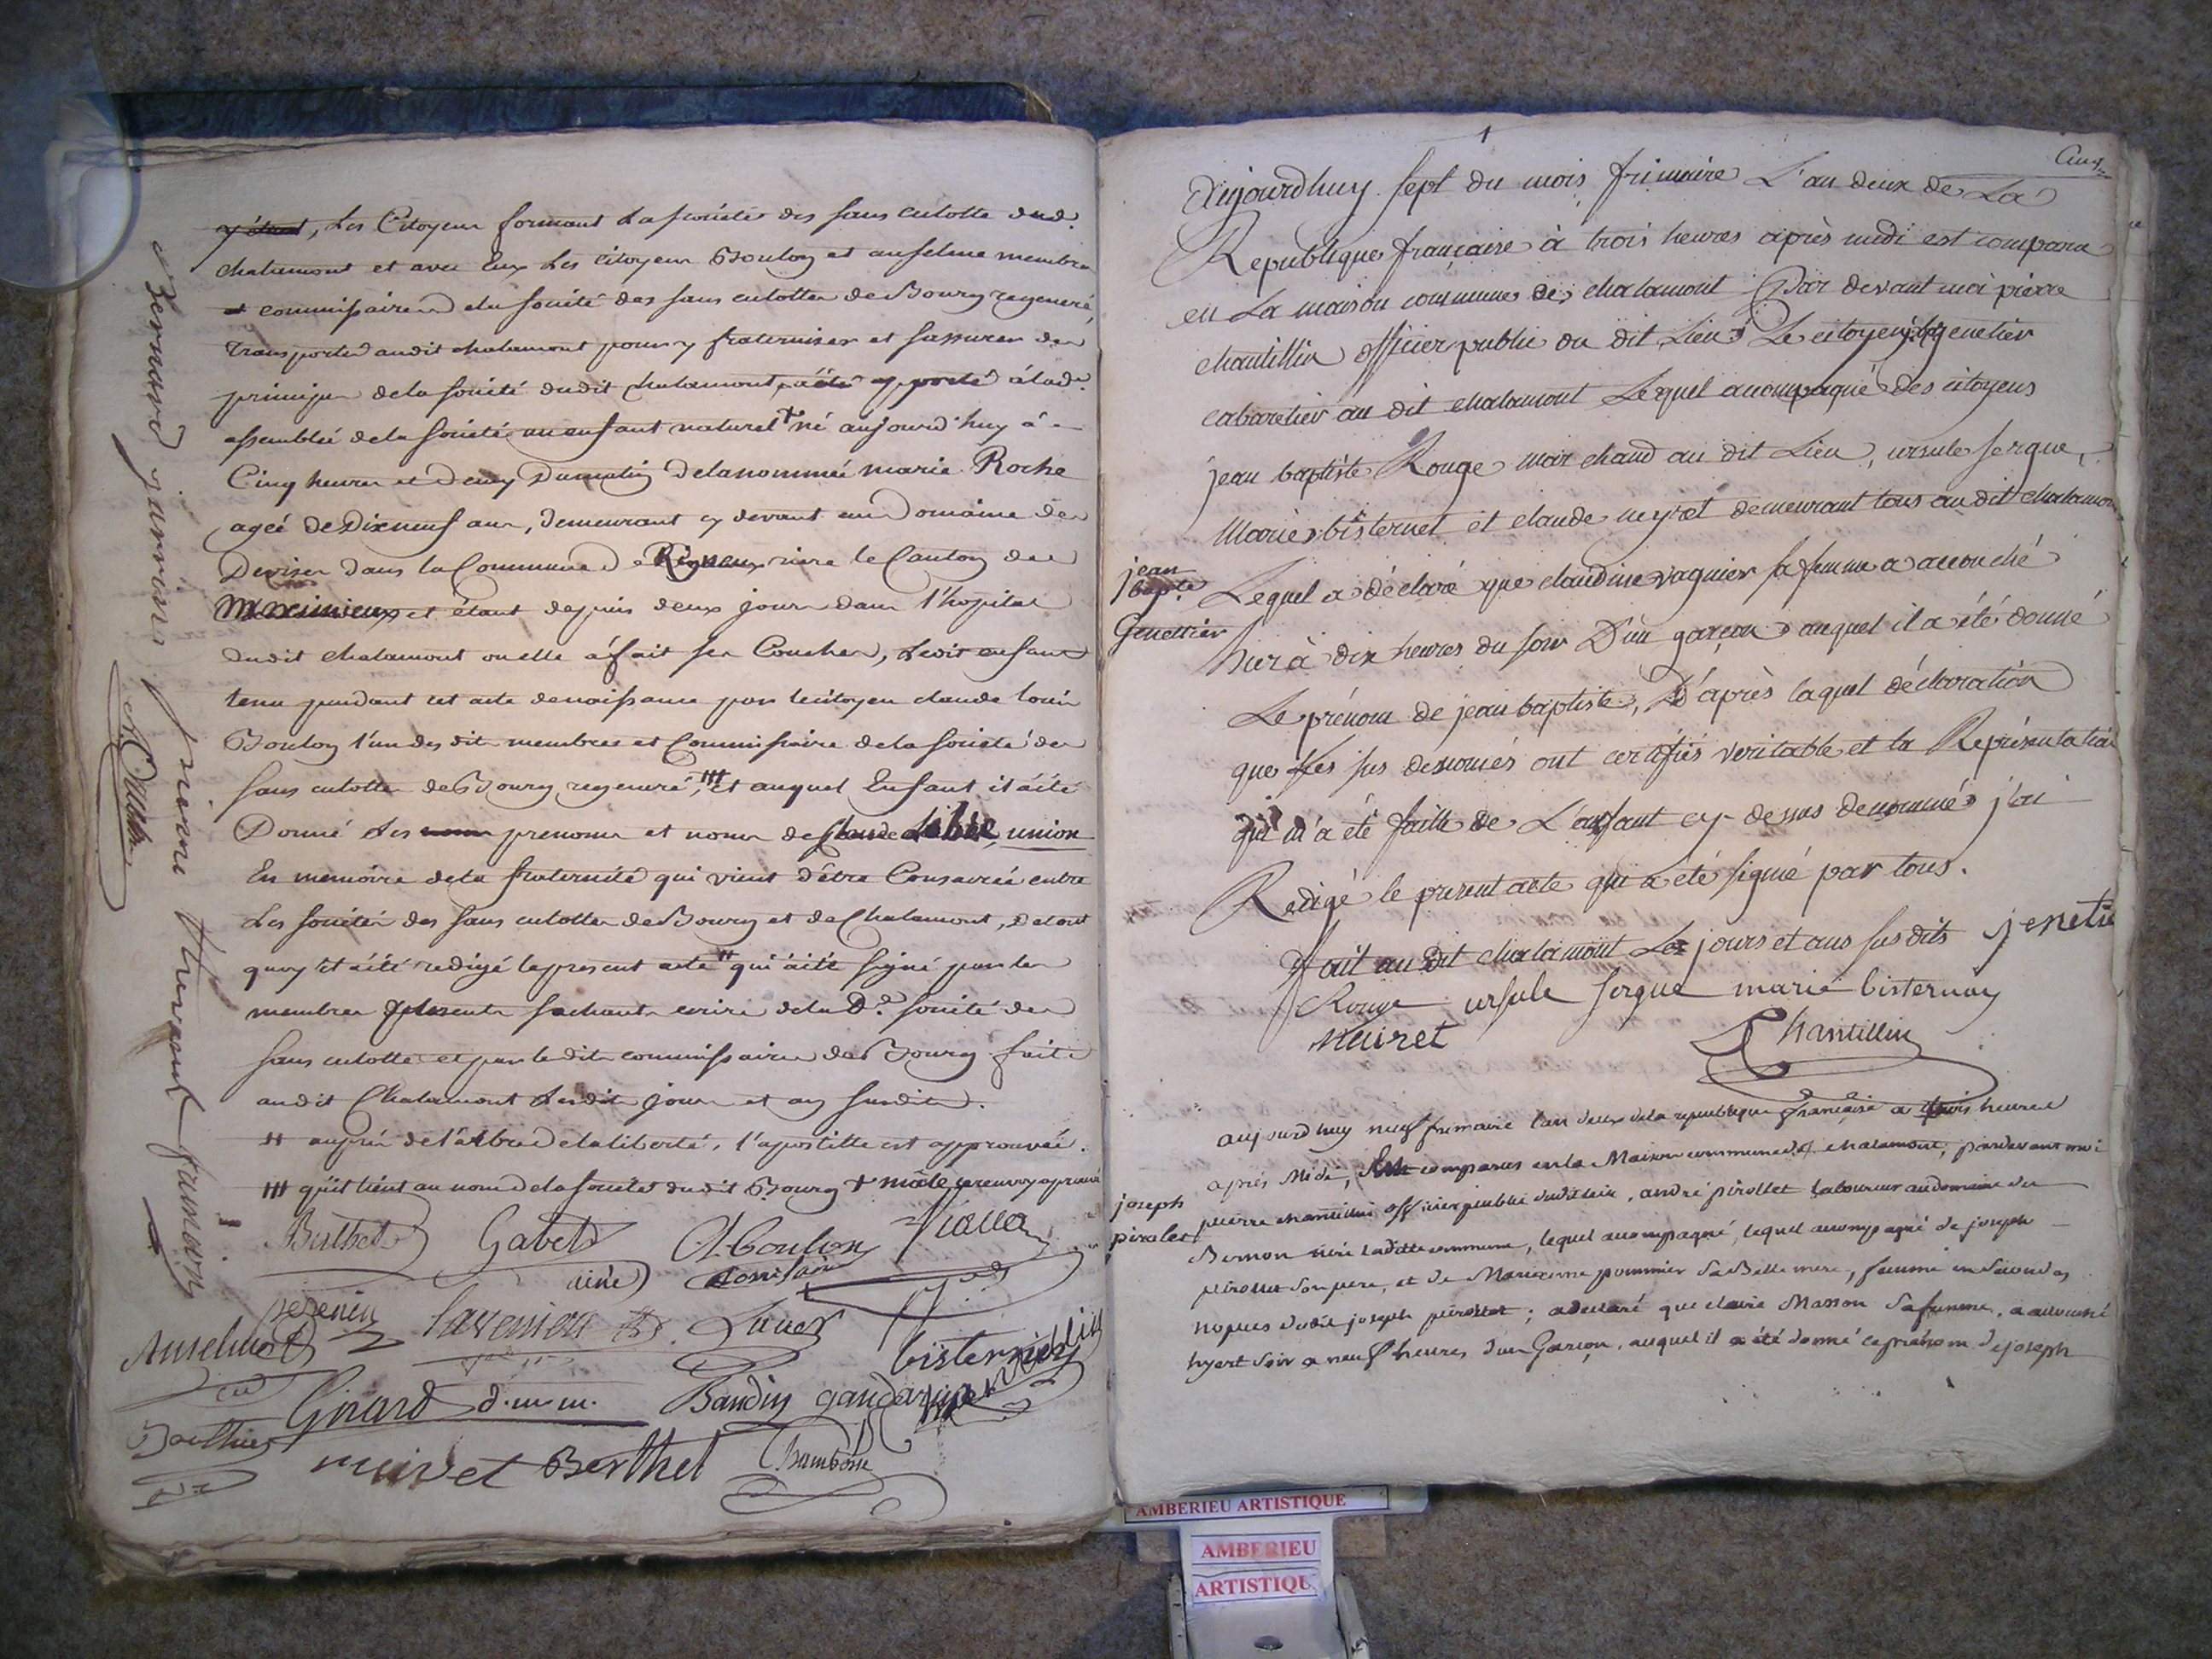 y étant, Les Citoyens formant La société des sans culotte dud.
chalamont et avec Eux Les citoyens Boulon et anselme membres
et commissaires de la société des sans culottes de Bourg regeneré,
transportés audit chalamont pour y fraterniser et s'assurer des
principes de la société dudit chalamont, a été apporté à lad.
assemblée de la société un enfant naturel + né aujourd'huy à
Cinq heures et demy Dumatin de la nommée marie Roche
ageé de Dixneuf ans, demeurant cy devant au Domaine de
dans la Commune de Rigneux rière le Canton de
Meximieux et étant depuis deux jours dans l'hopital
dudit chalamont ou elle a fait ses Couches, Ledit enfant
tenu pendant cet acte de naissance par le citoyen claude louis
Boulon l'un des dits membres et Commissaire de la société des
sans culottes de Bourg regeneré, ### Et auquel Enfant il a été
Donné Les prenoms et noms de claude Libre, union
En memoire de la fraternité qui vient d'être Consacrée entre
Les sociétés des sans culottes de Bourg et de Chalamont, De tout
quoy il a été redigé le present acte ## qui a été signé par les
membres présents sachant ecrire de la D.e société des
sans culotte et par le dits commissaires de Bourg fait
audit Chalamont Lesdits jour et an susdits.
## auprès de l'arbre de la liberté, l'apostille est approuvée.
### qu'il tient au nom de la société dudit Bourg + mâle le renvoy aprouvé
Berthet Gabet Cl boulon
ainé comisaire
perenin Lavenira
Anselme bisternai
Girard d.m.m. Baudin
muivet Berthet Chambone
Bernard
pierre thevenet
Cinq
1
Aujourdhuy sept du mois frimaire L'an deux de La
Republique française à trois heures après midi est comparu
en La maison commune de chalamont Par devant moi pierre
chantillin officier public du dit Lieu Le citoyen genetier
cabaretier au dit chalamont Lequel acompagné des citoyens
jean baptiste Rouge marchand au dit Lieu, ursule sergue,
Marie bisternet et claude neyret demeurant tous au dit chalamon
jean
bapte
Genettier
Lequel a déclaré que claudine vagnier sa femme a accouché
hier à dix heures du soir D'un garçon auquel il a été donné
Le prénom de jean baptiste, D'après laquel déclaration
que Les sus denomés ont certifiés veritable et la Représentation
qui m'a été faitte de L'enfant cy dessus denommé j'ai
Redigé le present acte qui a été signié par tous.
fait au dit chalamont Les jours et ans sus dits jenetie
Rouge ursule sergue marie bisternay
Neiret Chantillin
aujourdhuy neuf frimaire l'an deux dela republique française a trois heures
après Midi, Est comparus en la Maison commune de chalamont, pardevant moi
joseph
piralet
pierre chantillin officier public dudit lieu, andré pirollet Laboureur au domaine du
Bernon rière Ladite commune, lequel accompagné, lequel accompagné de joseph
pirollet son père, et de Marianne pommier sa Belle mere, femme en secondes
nopces dudit joseph pirollet; a declaré que claire Masson sa femme, a accouché
hyert soir a neuf heures d'un Garçon, auquel il a été donné le prénom de joseph
AMBERIEU ARTISTIQUE
AMBERIEU
ARTISTIQU